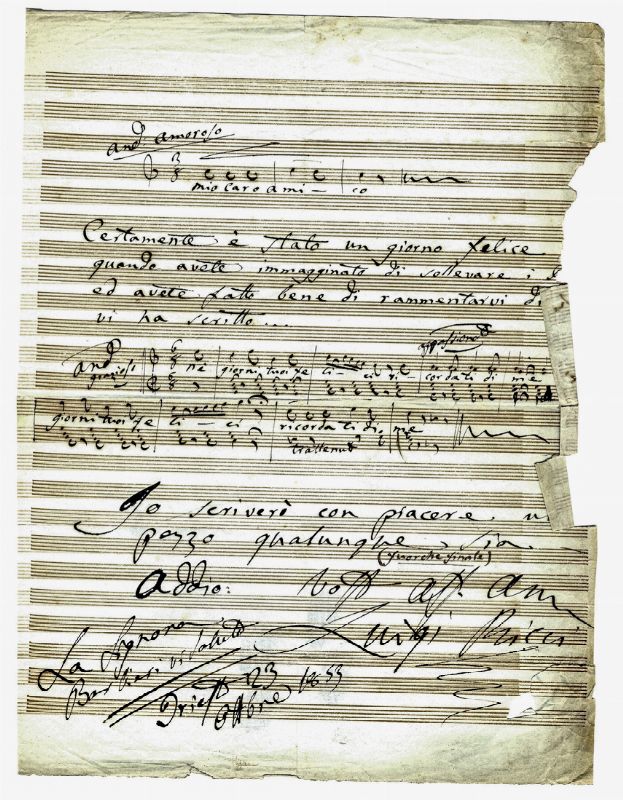 And.º amoroso
mio caro ami - co
Certamente è stato un giorno felice
quando avete immagginato di sollevare i
ed avete fatto bene di rammentarvi di
vi ha scritto...
appassionº
And.º grazioso Ne giorni tuoi fe - li - ci ri - cordati di me
giorni tuoi fe li - ci ricordati di me
trattenuto
Io scriverò con piacere u
pezzo qualunque sia
(fuorchè finale)
Addio: Vost aff. Am
Luigi Ricci
La Signora
Barbieri vi saluta
Trieste 23
Ottbre 1853